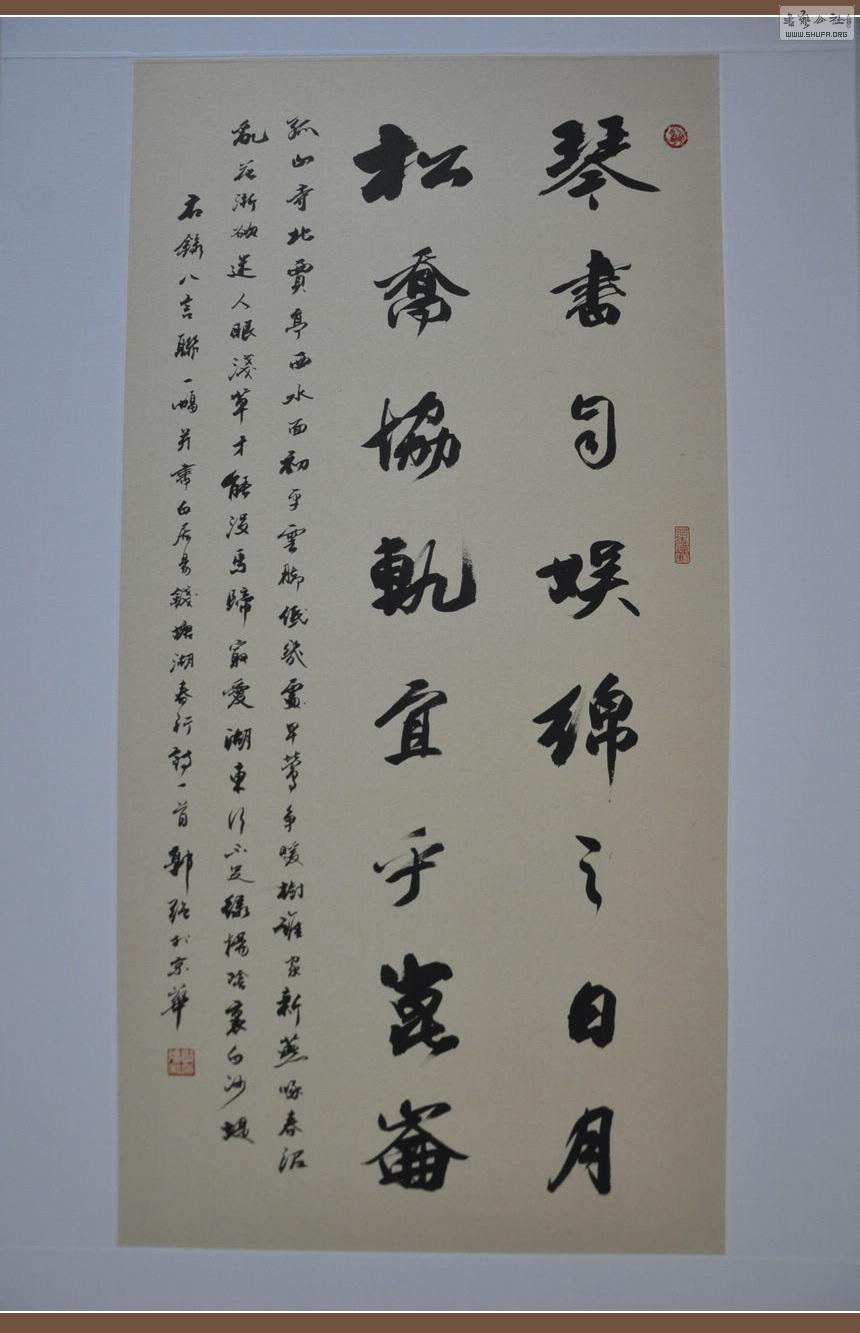 琴書自娱綿之日月
松喬協軌宜乎崑崙
孤山寺北賈亭西水面初平雲腳低幾處早鶯爭暖樹誰家新燕啄春泥
亂花漸欲迷人眼淺草才能沒馬蹄最愛湖東行不足綠楊陰裏白沙堤
右錄八言聯一幅并書白居易錢塘湖春行詩一首郭強於京華
WWW.SHUFA.ORG